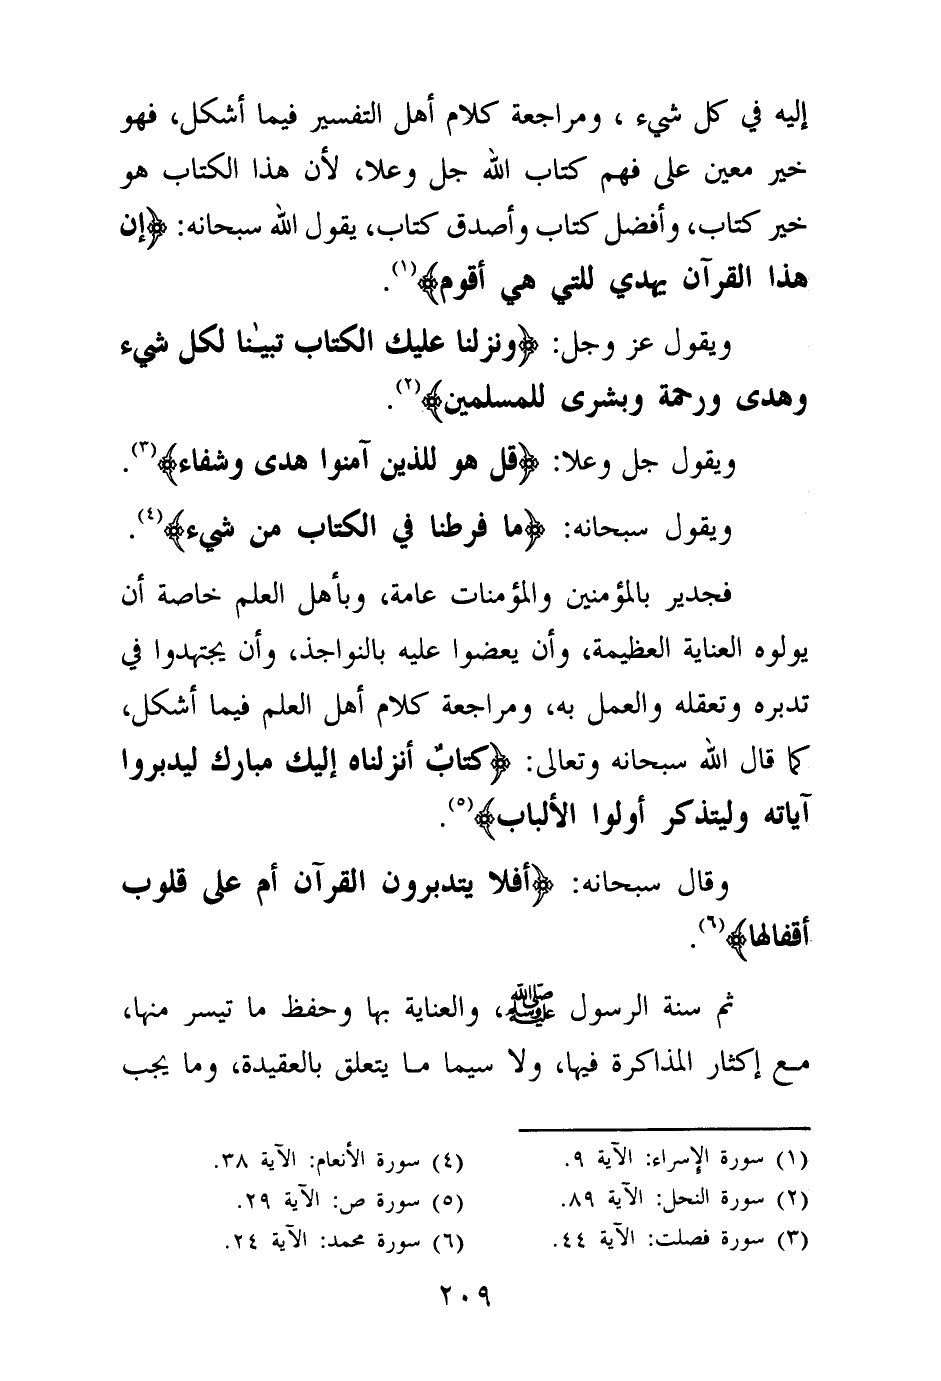 إليه في كل شيء ، ومراجعة كلام أهل التفسير فيما أشكل، فهو
خير معين على فهم كتاب الله جل وعلا، لأن هذا الكتاب هو
خير كتاب، وأفضل كتاب وأصدق كتاب، يقول الله سبحانه: ﴿إن
هذا القرآن يهدي للتي هي أقوم﴾(١).
ويقول عز وجل: ﴿ونزلنا عليك الكتاب تبيـٰنا لكل شيء
وهدى ورحمة وبشرى للمسلمين﴾(٢).
ويقول جل وعلا: ﴿قل هو للذين آمنوا هدى وشفاء﴾(٣).
ويقول سبحانه: ﴿ما فرطنا في الكتاب من شيء﴾(٤).
فجدير بالمؤمنين والمؤمنات عامة، وبأهل العلم خاصة أن
يولوه العناية العظيمة، وأن يعضوا عليه بالنواجذ، وأن يجتهدوا في
تدبره وتعقله والعمل به، ومراجعة كلام أهل العلم فيما أشكل،
كما قال الله سبحانه وتعالى: ﴿كتابٌ أنزلناه إليك مبارك ليدبروا
آياته وليتذكر أولوا الألباب﴾(٥).
وقال سبحانه: ﴿أفلا يتدبرون القرآن أم على قلوب
أقفالها﴾(٦).
ثم سنة الرسول ﷺ، والعناية بها وحفظ ما تيسر منها،
مع إكثار المذاكرة فيها، ولا سيما ما يتعلق بالعقيدة، وما يجب
(١) سورة الإسراء: الآية ٩.
(٢) سورة النحل: الآية ٨٩.
(٣) سورة فصلت: الآية ٤٤.
(٤) سورة الأنعام: الآية ٣٨.
(٥) سورة ص: الآية ٢٩.
(٦) سورة محمد: الآية ٢٤.
٢٠٩